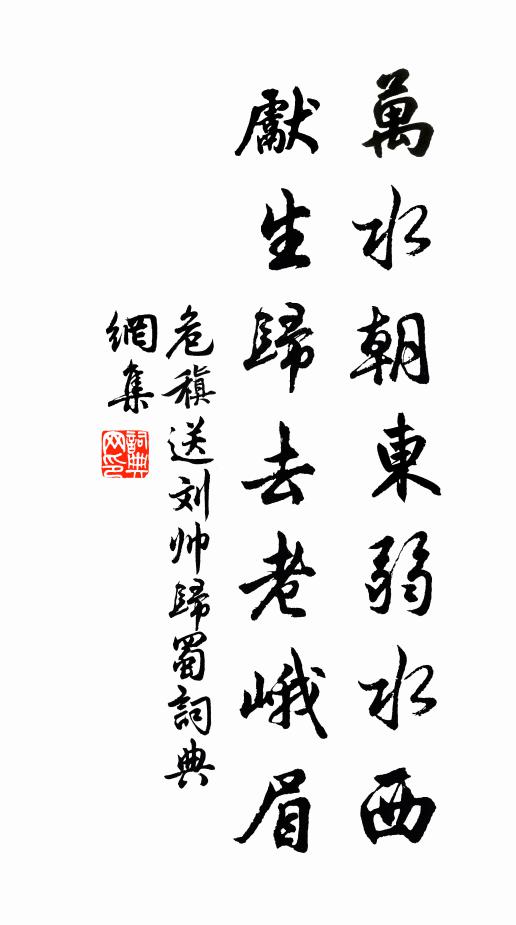 萬水朝東弱水西
獻生歸去老峨眉
危稹送刘帅歸蜀詞典
網集
詞典
网印